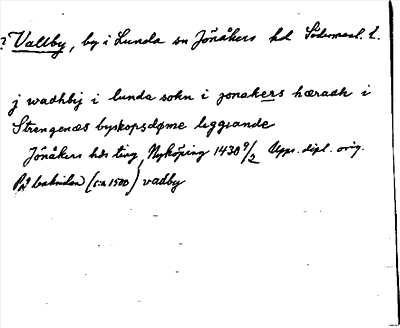 ? Vallby, by i Lunda sn Jönåkers hd Södermanl. l.
j wadhbij i lunda sokn i jonakers hæradh i
Strengenæs byskopsdøme liggiande
Jönåkers hds ting, Nyköping 1438 9/2 Upps. dipl. orig.
På baksidan (c:a 1500) vadby